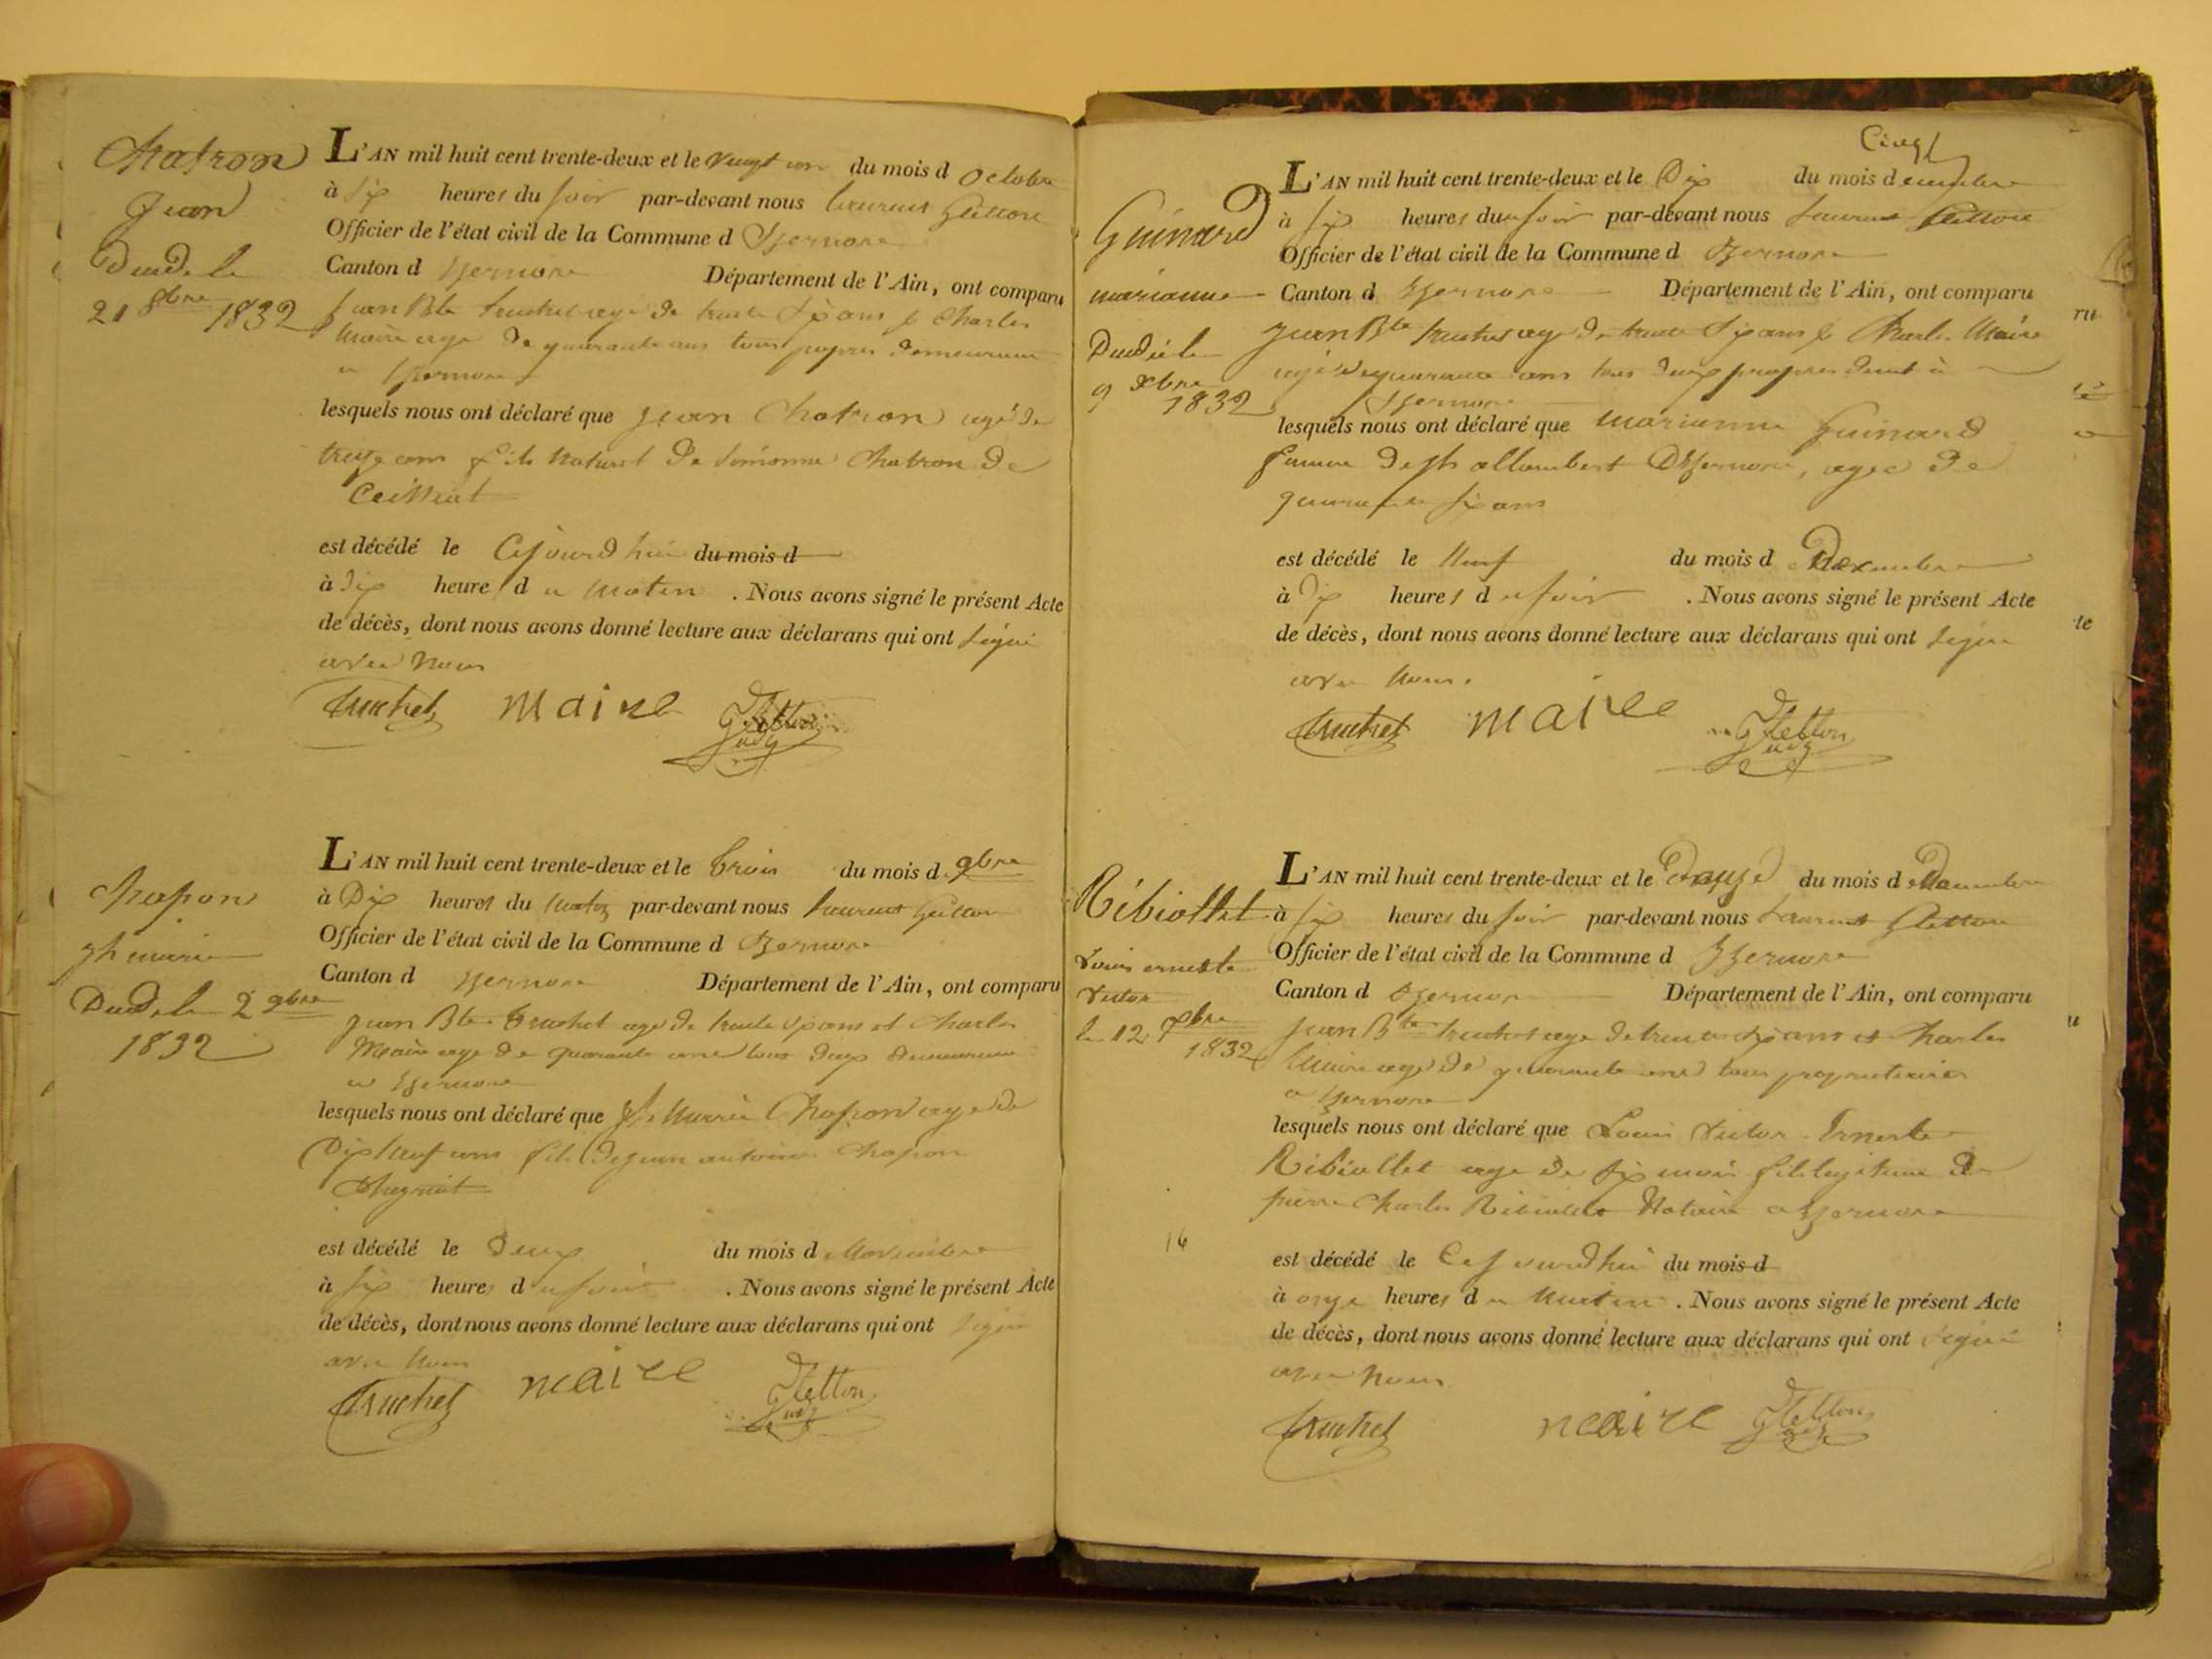 Chatron
Jean
Decdé le
21 8bre 1832
L'AN mil huit cent trente-deux et le vingt un du mois d octobre
à six heures du soir par-devant nous Laurent Gletton
Officier de l'état civil de la Commune d Izernore
Canton d Izernore Département de l'Ain, ont comparu
Jean Bte truchet agé de trente six ans & Charles
Maire agé de quarante ans tous propres demeurant
a Izernore
lesquels nous ont déclaré que Jean Chatron agé de
treize ans fils naturel de Simonne Chatron de
est décédé le Cejourdhui du mois d
à dix heures du matin . Nous avons signé le présent Acte
de décès, dont nous avons donné lecture aux déclarans qui ont signé
avec nous
truchet maire Gletton
Chapon
Jh marie
Decdé le 2 9bre
1832
L'AN mil huit cent trente-deux et le trois du mois d 9bre
à Dix heures du matin par-devant nous Laurent Gletton
Officier de l'état civil de la Commune d Izernore
Canton d Izernore Département de l'Ain, ont comparu
Jean Bte truchet agé de trente six ans et Charles
Maire agé de quarante ans tous deux demeurant
a Izernore
lesquels nous ont déclaré que Jh Marie Chapon agé de
Dix neuf ans fils de jean antoine Chapon
est décédé le Deux du mois d Novembre
à six heures du soir . Nous avons signé le présent Acte
de décès, dont nous avons donné lecture aux déclarans qui ont signé
avec nous
truchet maire Gletton
Guinard
marianne
Decdée le
9 xbre
1832
L'AN mil huit cent trente-deux et le Dix du mois decembre
à six heures du soir par-devant nous Laurent Gletton
Officier de l'état civil de la Commune d Izernore
Canton d Izernore Département de l'Ain, ont comparu
Jean Bte truchet agé de trente six ans & Charles Maire
agé de quarante ans tous deux propres demt à
Izernore
lesquels nous ont déclaré que marianne Guinard
femme de Jh allombert D'Izernore, agée de
quarante six ans
est décédé le Neuf du mois d Decembre
à Dix heures du soir . Nous avons signé le présent Acte
de décès, dont nous avons donné lecture aux déclarans qui ont signé
avec nous.
truchet maire Gletton
Ribiollet
Louis erneste
Victor
le 12 xbre
1832
L'AN mil huit cent trente-deux et le Douze du mois d Decembre
à six heures du soir par-devant nous Laurent Gletton
Officier de l'état civil de la Commune d Izernore
Canton d Izernore Département de l'Ain, ont comparu
Jean Bte truchet agé de trente six ans et Charles
Maire agé de quarante ans tous proprietaires
a Izernore
lesquels nous ont déclaré que Louis Victor Erneste
Ribiollet agé de six mois fils legitime de
pierre Charles Ribiollet Notaire a Izernore
16
est décédé le Cejourdhui du mois d
à onze heures du matin . Nous avons signé le présent Acte
de décès, dont nous avons donné lecture aux déclarans qui ont signé
avec nous
truchet maire Gletton